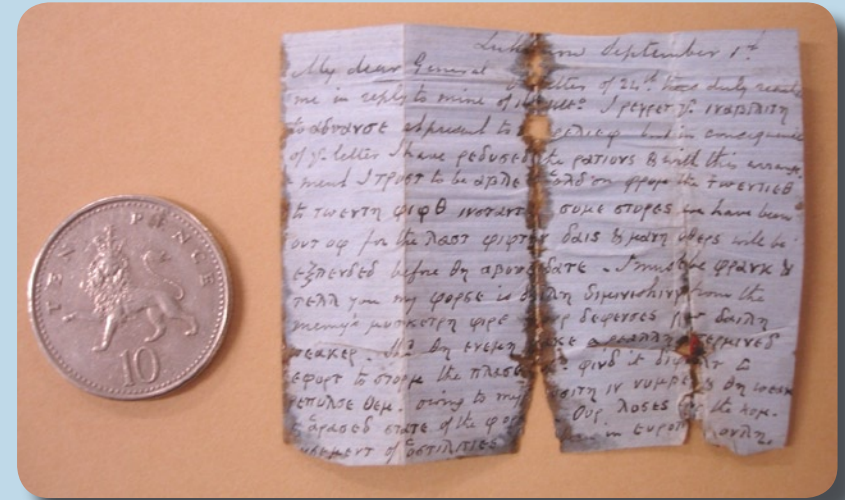 TEN PENCE
10
September 1st
My dear General
letter of 24th has duly reach
me in reply to mine of I ρεγρετ yr ιναβιλιτη
to αδυανσε at present to ρελιεφ but in consequence
of yr letter I have ρεδυσεδ the ρατιονς & with this arrange
ment I τρυστ to be αβλε ὁλδ on φρομ the τωεντιεθ
to τωεντη φιφθ ινσταντ σομε στορες we have been
ουτ οφ for the λαστ φιφτην δαις & μανη οθερς will be
εξπενδεδ before θη αβουε δατε . I must be φρανκ &
τελλ you my φορσε is δαιλη διμινιshινγ from the
enemy's μυσκετρη φιρε δεφενσες δαιλη
ωεακερ . θη ενεμη a ρεαλλη τερμινεδ
εφορτ to στορμ the πλασε φινδ it
ρεπυλσε θεμ . owing to my ιν νυμβερς & θη weak
ἁρασεδ στατε of the φορ Ουρ λοσες the kom
ενσεμεντ of ὁστιλιτιες in